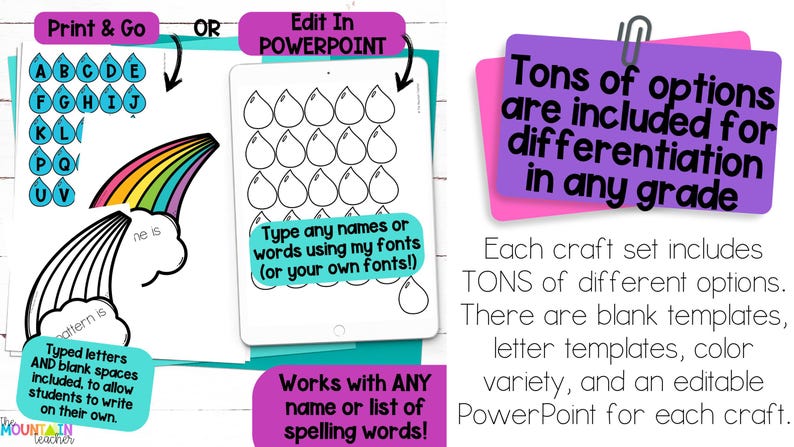 Print & Go
OR
Edit In
POWERPOINT
A B C D E
F G H I J
K L
P Q
U V
ne is
pattern is
Type any names or
words using my fonts
(or your own fonts!)
Typed letters
AND blank spaces
included, to allow
students to write
on their own.
Works with ANY
name or list of
spelling words!
The
MOUNTAIN
teacher
Tons of options
are included for
differentiation
in any grade
Each craft set includes
TONS of different options.
There are blank templates,
letter templates, color
variety, and an editable
PowerPoint for each craft.